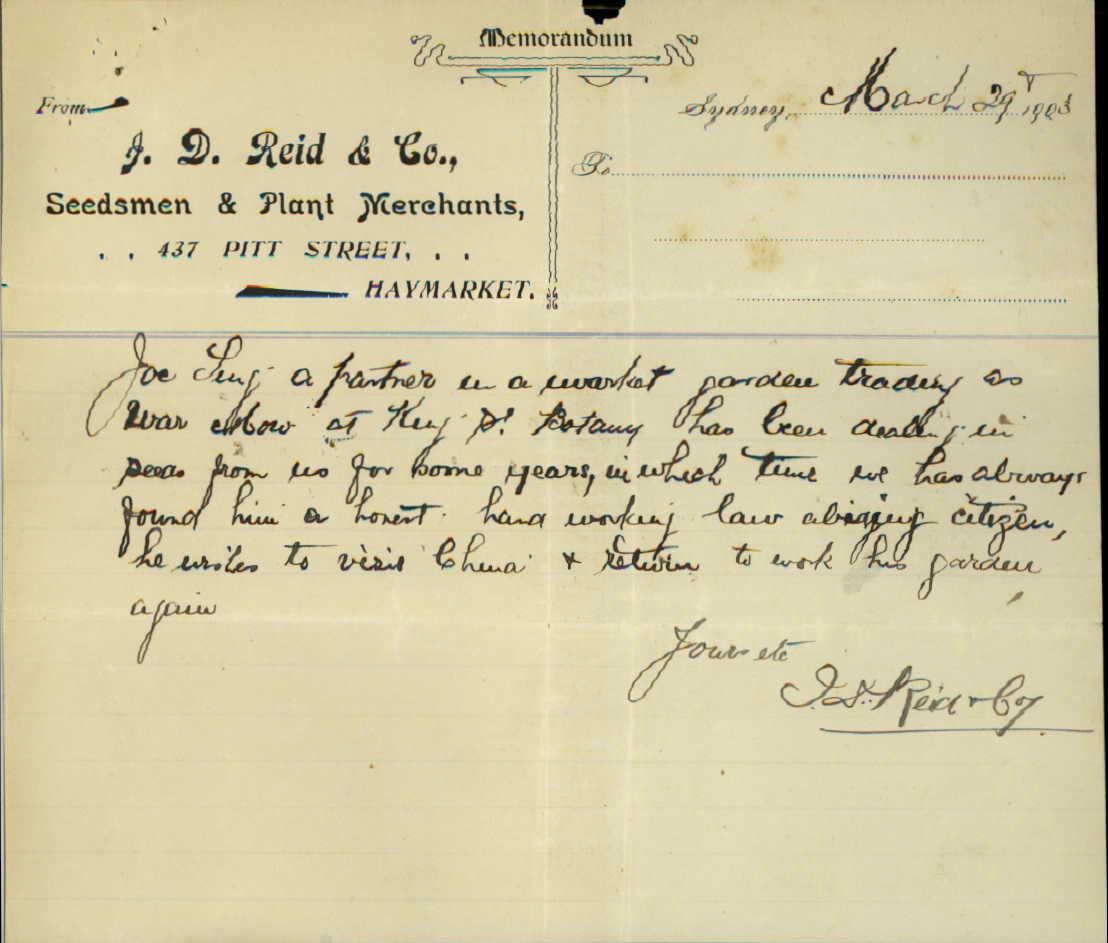 Memorandum
From
Sydney, March 29 1903
J. D. Reid & Co.,
To
Seedsmen & Plant Merchants,
437 PITT STREET,
HAYMARKET.
Joe Sing a partner in a market garden trading as
War at King St. Botany has been dealing in
seeds from us for some years, in which time we has always
found him a honest hard working law abiding citizen,
he wishes to visit China & return to work his garden
again
Yours etc
J. D. Reid & Coy